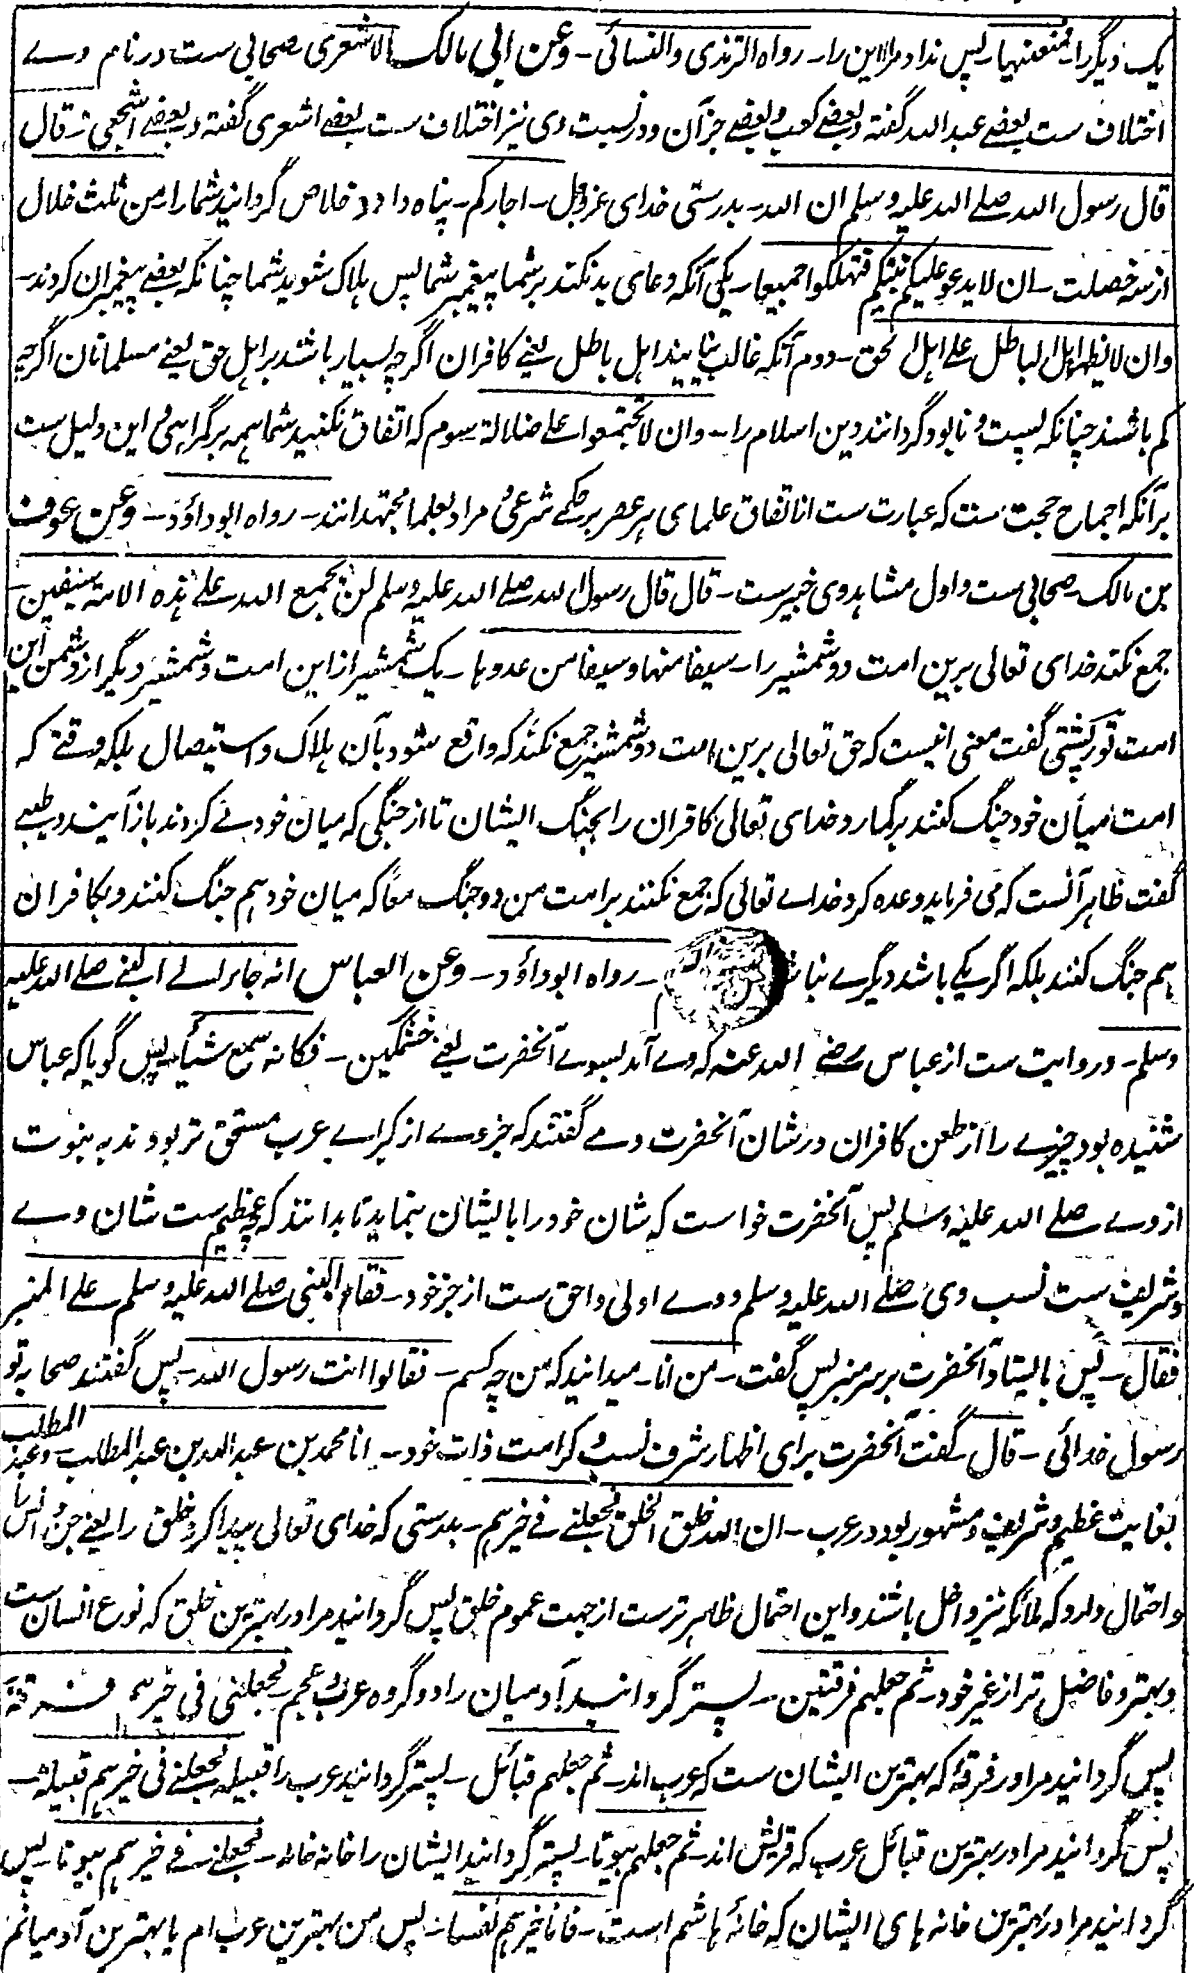 یک دیگر را فمنعنیها پس نداد مرا این را۔ رواه الترمذی والنسائی۔ وعن ابی مالک الاشعری صحابی ست در نام وے
اختلاف ست بعضے عبد الله گفته و بعضے کعب و بعضے جز آن و در نسبت وی نیز اختلاف ست بعضے اشعری گفته و بعضے اشجعی۔ قال
قال رسول الله صلے الله علیه وسلم ان الله۔ بدرستی خدای عز و جل۔ اجارکم۔ پناه داد و خلاص گردانید شما را من ثلث خلال
از سه خصلت۔ ان لا یدعو علیکم نبیکم فتهلکوا جمیعا۔ یکی آنکه دعای بد نکند بر شما پیغمبر شما پس هلاک شوید شما چنانکه بعضے پیغمبران کردند۔
وان لا یظهر اهل الباطل علے اهل الحق۔ دوم آنکه غالب نیایند اهل باطل یعنے کافران اگرچه بسیار باشند بر اهل حق یعنے مسلمانان اگرچه
کم باشند چنانکه پست و نابود گردانند دین اسلام را۔ وان لا تجتمعوا علے ضلالة سوم که اتفاق نکنید شما همه بر گمراهی و این دلیل ست
بر آنکه اجماع حجت ست که عبارت ست از اتفاق علمای هر عصر بر حکمے شرعی و مراد بعلما مجتهدانند۔ رواه ابوداؤد۔ وعن عوف
بن مالک صحابی ست و اول مشاهد وی خیبر ست۔ قال قال رسول الله صلے الله علیه وسلم لن یجمع الله علے هذه الامة سیفین۔
جمع نکند خدای تعالی برین امت دو شمشیر را۔ سیفا منها وسیفا من عدوها۔ یک شمشیر از این امت و شمشیر دیگر از دشمن این
امت تورپشتی گفت معنی اینست که حق تعالی برین امت دو شمشیر جمع نکند که واقع شود بآن هلاک و استیصال بلکه وقتے که
امت میان خود جنگ کنند برگمارد خدای تعالی کافران را بجنگ ایشان تا از جنگی که میان خود مے کردند باز آیند و طیبے
گفت ظاهر آنست که می فرماید وعده کرد خداے تعالی که جمع نکنند بر امت من دو جنگ معا که میان خود هم جنگ کنند و بکافران
هم جنگ کنند بلکه اگر یکے باشد دیگرے نباشد۔ رواه ابوداؤد۔ وعن العباس انه جاء الے النبے صلے الله علیه
وسلم۔ و روایت ست از عباس رضے الله عنه که وے آمد بسوے آنحضرت یعنے خشمگین۔ فکانه سمع شیأ۔ پس گویا که عباس
شنیده بود چیزے را از طعن کافران در شان آنحضرت و مے گفتند که جز وے از کبراے عرب مستحق تر بودند به نبوت
از وے صلے الله علیه وسلم پس آنحضرت خواست که شان خود را بایشان بنماید تا بدانند که چه عظیم ست شان وے
و شریف ست نسب وی صلے الله علیه وسلم و وے اولی و احق ست از جز خود۔ فقام النبی صلے الله علیه وسلم علے المنبر
فقال۔ پس بایستاد آنحضرت بر سر منبر پس گفت۔ من انا۔ میدانید که من چه کسم۔ فقالوا انت رسول الله۔ پس گفتند صحابه تو
رسول خدائی۔ قال۔ گفت آنحضرت برای اظهار شرف نسب و کرامت ذات خود۔ انا محمد بن عبد الله بن عبد المطلب۔ وعبد المطلب
بغایت عظیم و شریف و مشهور بود در عرب۔ ان الله خلق الخلق فجعلنے فے خیرهم۔ بدرستی که خدای تعالی پیدا کرد خلق را یعنے جن و انس را
و احتمال دارد که ملائکه نیز داخل باشند و این احتمال ظاهر ترست از جهت عموم خلق پس گردانید مرا در بهترین خلق که نوع انسان ست
و بهتر و فاضل تر از غیر خود۔ ثم جعلهم فرقتین۔ پستر گردانید آدمیان را دو گروه عرب و عجم۔ فجعلنی فی خیرهم فرقة
پس گردانید مرا در فرقۀ که بهترین ایشان ست که عرب اند۔ ثم جعلهم قبائل۔ پستر گردانید عرب را قبیله فجعلنے فی خیرهم قبیلة۔
پس گردانید مرا در بهترین قبائل عرب که قریش اند۔ ثم جعلهم بیوتا۔ پستر گردانید ایشان را خانه خانه۔ فجعلنے فے خیرهم بیوتا۔ پس
گردانید مرا در بهترین خانه های ایشان که خانۀ هاشم است۔ فانا خیرهم نفسا۔ پس من بهترین عرب ام یا بهترین آدمیانم